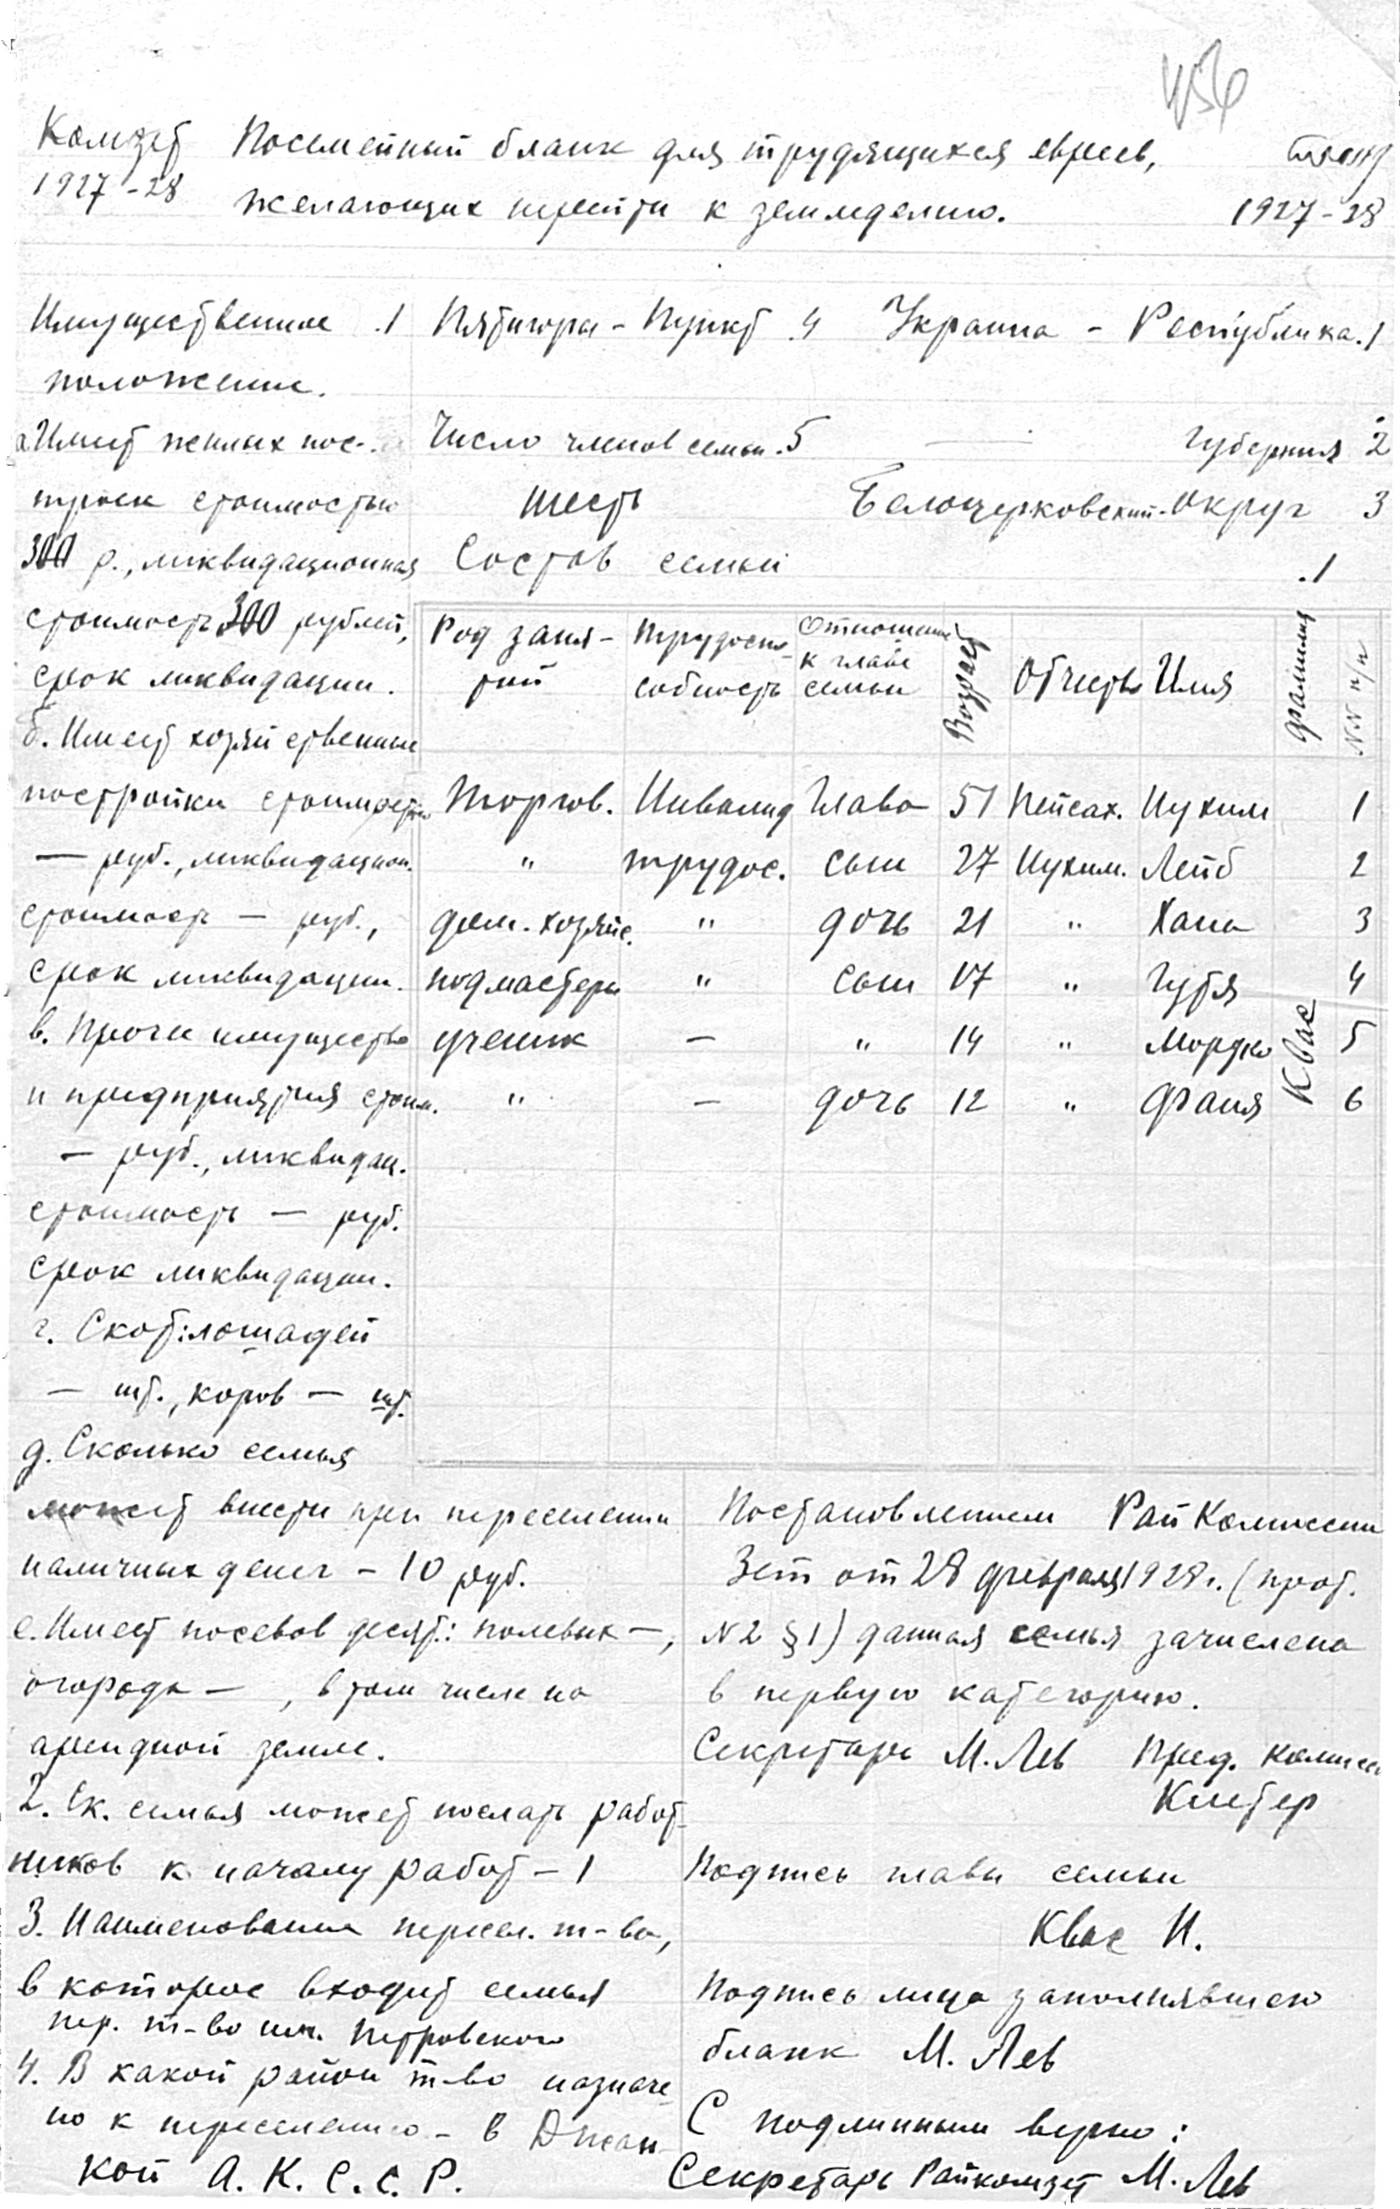 456
Комзет Посемейный бланк для трудящихся евреев,
1927-28 желающих перейти к земледелию. 1927-28
Пятигоры - Пункт .4 Украина - Республика .1
Число членов семьи .5 — Губерния 2
шесть Белоцерковский - Округ 3
Состав семьи .1
Род заня- Трудоспо- Отношение Возраст Отчество Имя Фамилия NN п/п
тий собность к главе
семьи
Торгов. Инвалид Глава 51 Пейсах. Иухим 1
" трудос. сын 27 Иухим. Лейб 2
дом. хозяйс. " дочь 21 " Хана 3
подмастерье " сын 17 " Гутя 4
ученик — " 14 " Мордко 5
" — дочь 12 " Фаня 6
Квас
Имущественное .1
положение.
а. Имеет жилых пос-
троек стоимостью
300 р., ликвидационная
стоимость 300 рублей,
срок ликвидации.
б. Имеет хозяйственные
постройки стоимостью
— руб., ликвидацион.
стоимость — руб.,
срок ликвидации.
в. Прочее имущество
и предприятия стоим.
— руб., ликвидац.
стоимость — руб.
срок ликвидации.
г. Скот: лошадей
— шт., коров — шт.
д. Сколько семья
может внести при переселении
наличных денег - 10 руб.
е. Имеет посевов десят.: полевых —,
огорода — , в том числе на
арендной земле.
2. Ск. семья может послать работ-
ников к началу работ - 1
3. Наименование пересел. т-ва,
в которое входит семья
пер. т-во им. Петровского
4. В какой район т-во назначе-
но к переселению - в Джан-
кой А. К. С. С. Р.
Постановлением РайКомиссии
Зет от 28 февраля 1928 г. (прот.
N2 §1) данная семья зачислена
в первую категорию.
Секретарь М. Лев Пред. комисси
Подпись главы семьи
Квас И.
Подпись лица заполнявшего
бланк М. Лев
С подлинным верно:
Секретарь Райкомзет М. Лев